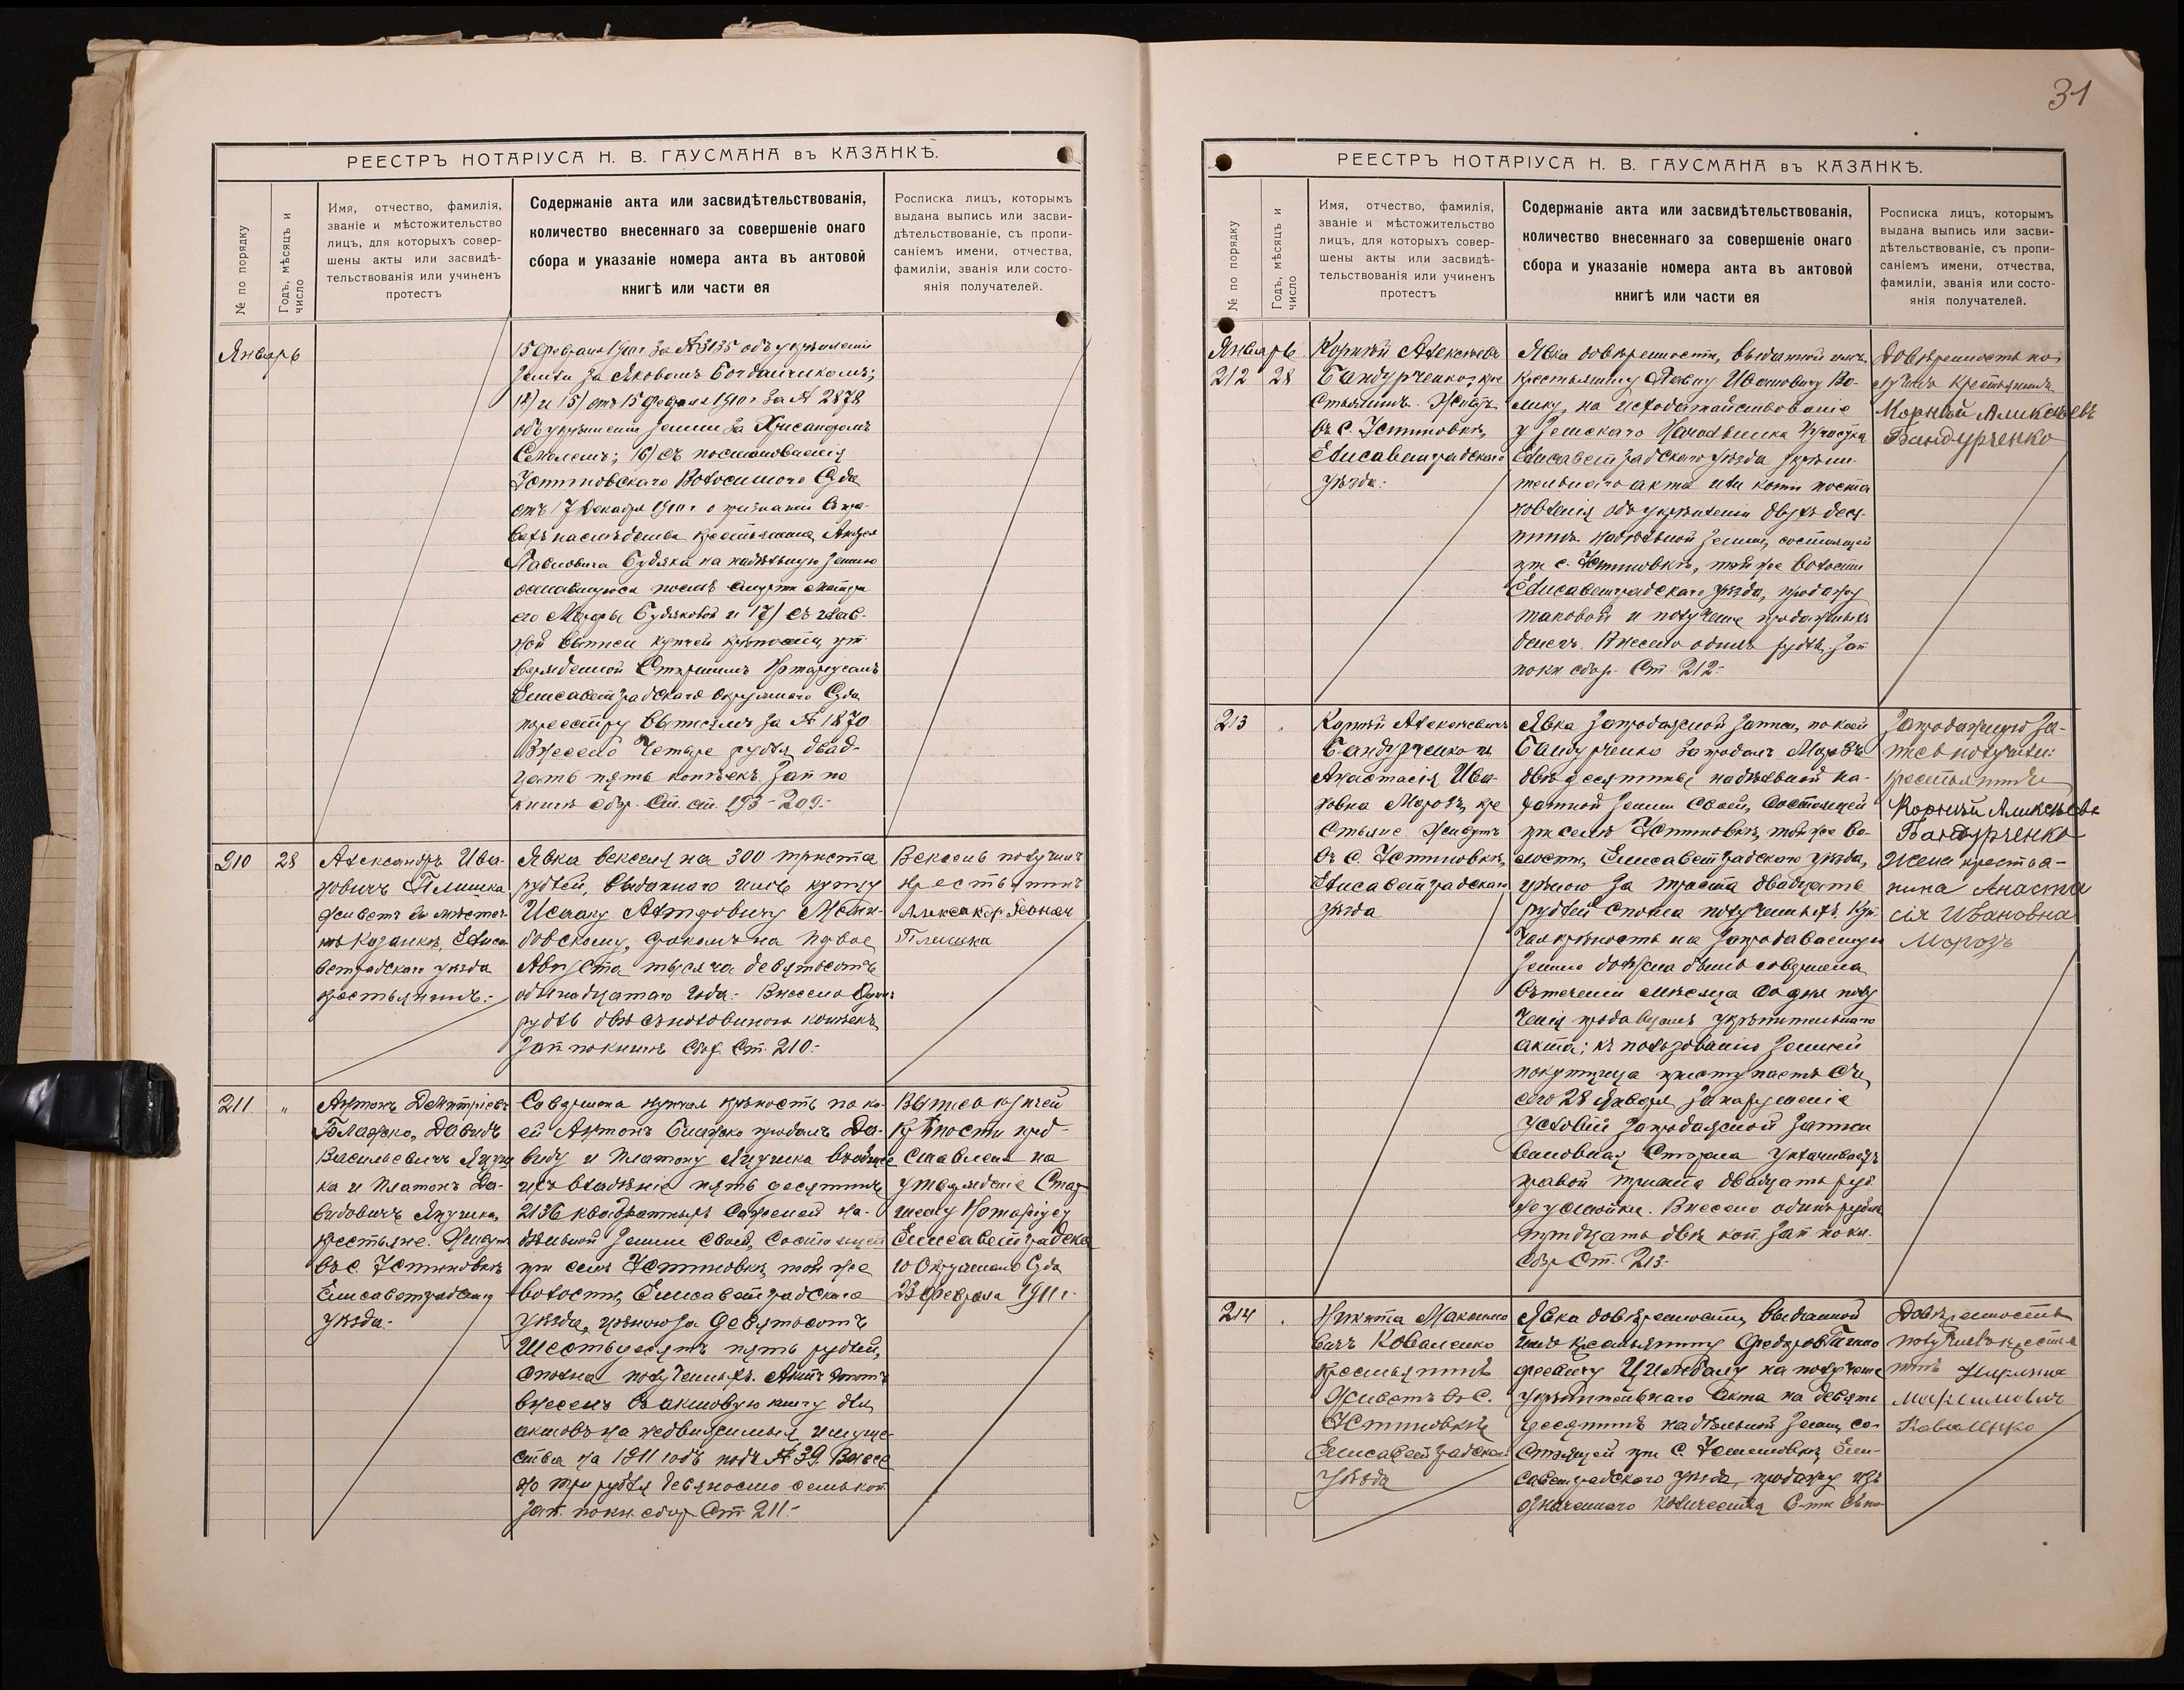 РЕЕСТРЪ НОТАРІУСА Н. В. ГАУСМАНА въ КАЗАНКѢ.
№ по порядку
Годъ, мѣсяцъ и
число
Имя, отчество, фамилія,
званіе и мѣстожительство
лицъ, для которыхъ совер-
шены акты или засвидѣ-
тельствованія или учиненъ
протестъ
Содержаніе акта или засвидѣтельствованія,
количество внесеннаго за совершеніе онаго
сбора и указаніе номера акта въ актовой
книгѣ или части ея
Росписка лицъ, которымъ
выдана выпись или засви-
дѣтельствованіе, съ пропи-
саніемъ имени, отчества,
фамиліи, званія или состо-
янія получателей.
Январь
15 Февраля 1910 г за № 3135 объ укрѣпленіи
земли за Яковомъ
и 15/ отъ 15 Февраля 1910 г за № 2878
объ укрѣпленіи земли за Хрисанфомъ
16/ съ постановленія
Устиновскаго Волостного Суда
отъ 17 Декабря 1910 г о признаніи въ пра-
вахъ наслѣдства крестьянина Андрея
Павловича Будяка на надѣльную землю
оставшуюся послѣ смерти матери
его Марфы Будяковой и 17/ съ глав-
ной выписи купчей крѣпости, ут-
вержденной Старшимъ Нотаріусомъ
Елисаветградскаго Окружнаго Суда
по реестру за № 1870
Внесено Четыре рубля двад-
цать пять копѣекъ. Зап по
книгѣ сбор. Ст. ст. 193-209.-
210
28
Александръ Ива-
новичъ Плишка
живетъ въ мѣстеч-
кѣ Казанкѣ, Елиса-
ветградскаго уѣзда
крестьянинъ.-
Явка векселя на 300 триста
рублей, выданнаго имъ купцу
Исааку
срокомъ на первое
Августа тысяча девятьсотъ
одинадцатаго года.- Внесено Одинъ
рубль двѣ съ половиною копѣекъ
Зап по книгѣ сбор. Ст. 210.-
Вексель получилъ
крестьянинъ
Александр Иванов
Плишка
211
"
Антонъ Дмитріевъ
Блажко, Давидъ
Васильевичъ Яцуш
ка и Платонъ Да-
видовичъ Яцушка,
крестьяне. Живутъ
въ с. Устиновкѣ
Елисаветградскаго
уѣзда.-
Совершена купчая крѣпость по ко-
ей Антонъ Блажко продалъ Да-
виду и Платону Яцушка въ общее
ихъ владѣніе пять десятинъ
2136 квадратныхъ саженей на-
дѣльной земли своей, состоящей
при селѣ Устиновкѣ, той же
волости, Елисаветградскаго
уѣзда, цѣною за Девятьсотъ
Шестьдесятъ пять рублей,
сполна полученныхъ. Актъ этотъ
внесенъ въ актовую книгу для
актовъ на недвижимыя имуще-
ства на 1911 годъ подъ № 39. Внесе
но три рубля девяносто семь коп
Зап. по кн. сбор Ст 211.-
Выпись купчей
крѣпости пред-
ставлена на
утвержденіе Стар-
шему Нотаріусу
Елисаветградска
го Окружнаго Суда
23 Февраля 1911 г.
31
РЕЕСТРЪ НОТАРІУСА Н. В. ГАУСМАНА въ КАЗАНКѢ.
№ по порядку
Годъ, мѣсяцъ и
число
Имя, отчество, фамилія,
званіе и мѣстожительство
лицъ, для которыхъ совер-
шены акты или засвидѣ-
тельствованія или учиненъ
протестъ
Содержаніе акта или засвидѣтельствованія,
количество внесеннаго за совершеніе онаго
сбора и указаніе номера акта въ актовой
книгѣ или части ея
Росписка лицъ, которымъ
выдана выпись или засви-
дѣтельствованіе, съ пропи-
саніемъ имени, отчества,
фамиліи, званія или состо-
янія получателей.
Январь
212
28
Корнѣй Алексѣевъ
Бандурченко, кре
стьянинъ. Живетъ
въ с. Устиновкѣ,
Елисаветградскаго
уѣзда.-
Явка довѣренности, выданной имъ
крестьянину Павлу Ивановичу Во-
лику, на исходатайствованіе
у Земскаго Начальника участка
Елисаветградскаго уѣзда укрѣпи-
тельнаго акта или копіи поста
новленія объ укрѣпленіи двухъ деся-
тинъ надѣльной земли, состоящей
при с. Устиновкѣ, той же волости
Елисаветградскаго уѣзда, продажу
таковой и полученіе продажныхъ
денегъ. Внесено одинъ рубль. Зап
по кн сбор. Ст. 212.-
Довѣренность по-
лучилъ крестьянинъ
Корнѣй Алексѣевъ
Бандурченко
213
"
Корнѣй Алексѣевичъ
Бандурченко и
Анастасія Ива-
новна Морозъ, кре
стьяне. Живутъ
въ с. Устиновкѣ,
Елисаветградскаго
уѣзда
Явка запродажной записи, по коей
Бандурченко запродалъ Морозъ
двѣ десятины надѣльной па-
хатной земли своей, состоящей
при селѣ Устиновкѣ, той же во-
лости, Елисаветградскаго уѣзда,
цѣною за триста двадцать
рублей сполна полученныхъ. Куп
чая крѣпость на запродаваемую
землю должна быть совершена
въ теченіи мѣсяца со дня полу
ченія продавцомъ укрѣпительнаго
акта; къ пользованію землей
покупщица приступаетъ съ
сего 28 Января, за нарушеніе
условій запродажной записи
виновная сторона уплачиваетъ
правой триста двадцать руб.
неустойки. Внесено одинъ рубль
тридцать двѣ коп. Зап. по кн.
сбор Ст. 213.-
Запродажную за-
пись получили:
крестьянинъ
Корнѣй Алексѣевъ
Бандурченко
Жена крестья-
нина Анаста
сія Ивановна
Морозъ
214
"
Никита Максимо
вичъ Коваленко
крестьянинъ
Живетъ въ с.
Устиновкѣ
Елисаветградскаго
уѣзда
Явка довѣренности, выданной
имъ крестьянину Федору Тимо
феевичу Цимбалу на полученіе
укрѣпительнаго акта на девять
десятинъ надѣльной земли, со-
стоящей при с. Устиновкѣ, Ели-
саветградскаго уѣзда, продажу изъ
означеннаго количества
Довѣренность
получилъ крестья
нинъ
Максимовичъ
Коваленко